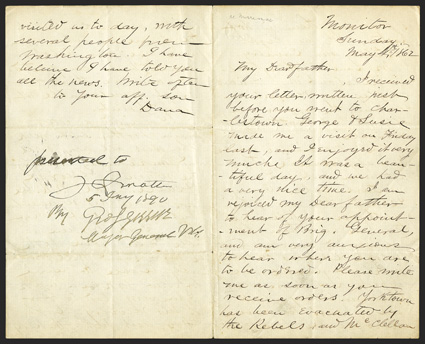 Monitor
Sunday
May 4th, 1862
My Dear father,
I received
your letter, written just
before you went to Char-
lestown. George & Susie
made me a visit on Friday
last, and I enjoyed it very
much. It was a beau-
tiful day, and we had
a very nice time. I am
rejoiced my Dear father
to hear of your appoint-
ment of Brig. General,
and am very anxious
to hear where you are
to be ordered. Please write
me as soon as you
receive orders. Yorktown
has been evacuated by
the Rebels, and McClellan
visited us to day, with
several people from
Washington. I have
believe I have told you
all the news. Write often
to your aff. son
Dana
presented to
5 1890
By
Major General